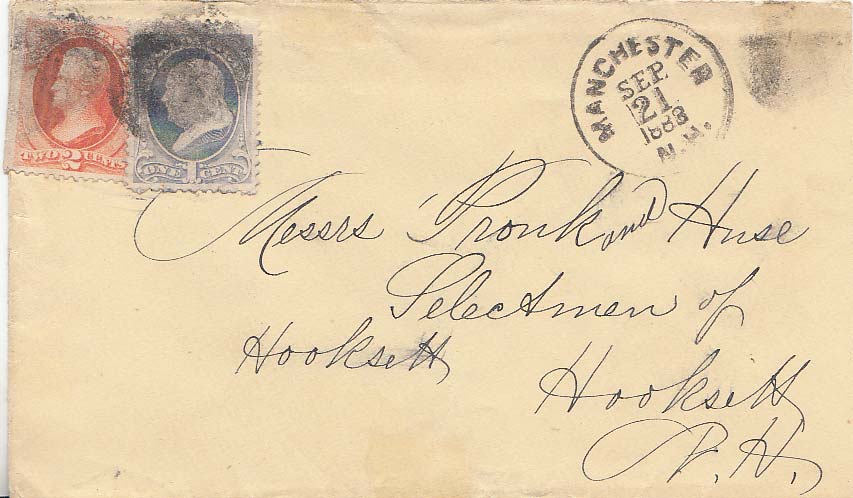 TWO 2 CENTS
ONE 1 CENT
MANCHESTER
SEP
21
1883
N.H.
Messrs Pronk and Huse
Selectmen of
Hooksett
Hooksett
N.H.